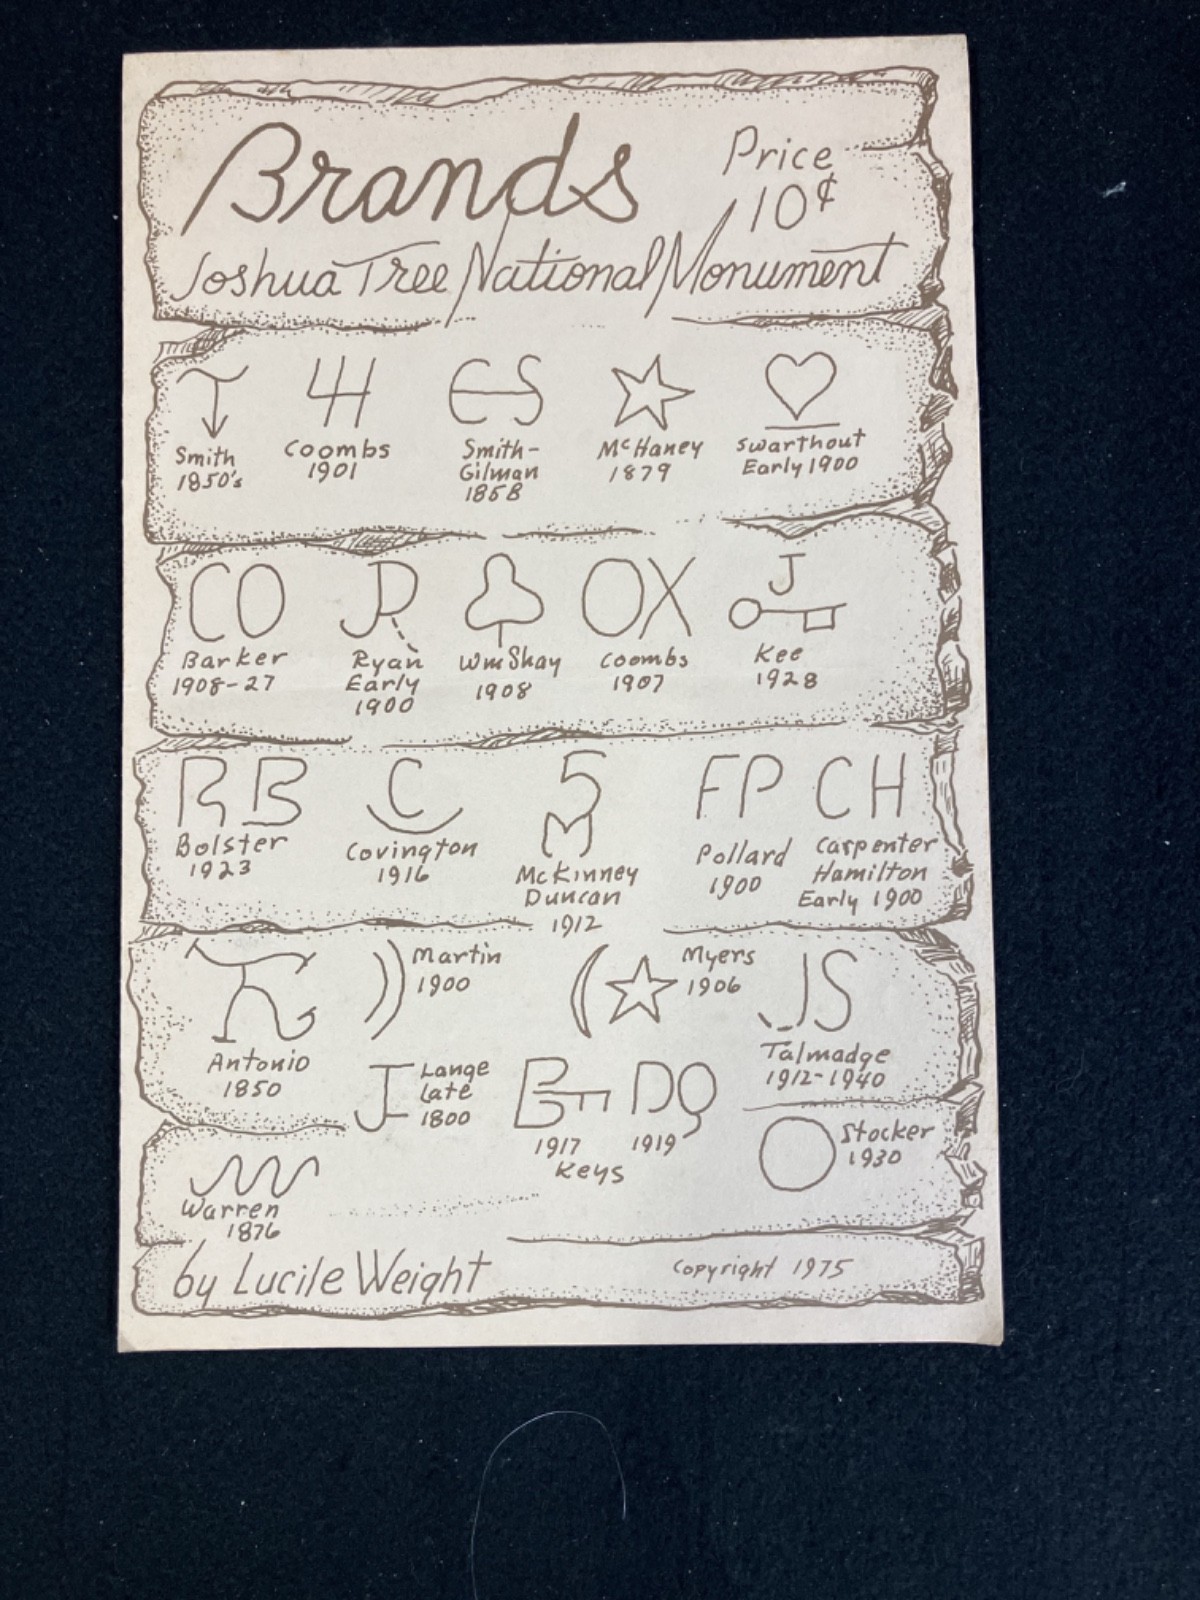 Brands
Price
10¢
Joshua Tree National Monument
Smith
1850's
Coombs
1901
Smith-
Gilman
1858
McHaney
1879
Swarthout
Early 1900
CO
Barker
1908-27
Ryan
Early
1900
Wm Shay
1908
OX
Coombs
1907
J
Kee
1928
RB
Bolster
1923
C
Covington
1916
5
M
McKinney
Duncan
1912
FP
Pollard
1900
CH
Carpenter
Hamilton
Early 1900
Antonio
1850
Martin
1900
Myers
1906
JS
Talmadge
1912-1940
J
Lange
Late
1800
B
1917
DQ
1919
Keys
Stocker
1930
Warren
1876
by Lucile Weight
Copyright 1975